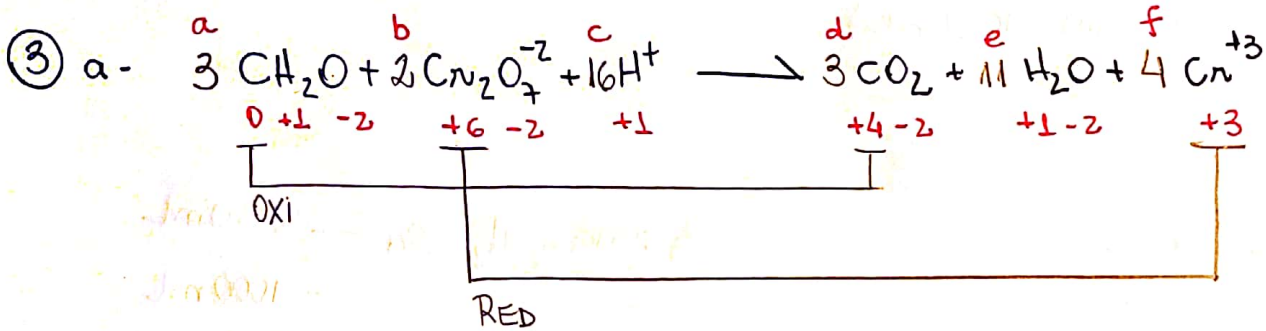 a b c d e f
③ a- 3 CH₂O + 2 Cr₂O₇⁻² + 16H⁺ → 3 CO₂ + 11 H₂O + 4 Cr⁺³
0 +1 -2 +6 -2 +1 +4 -2 +1 -2 +3
OXI
RED